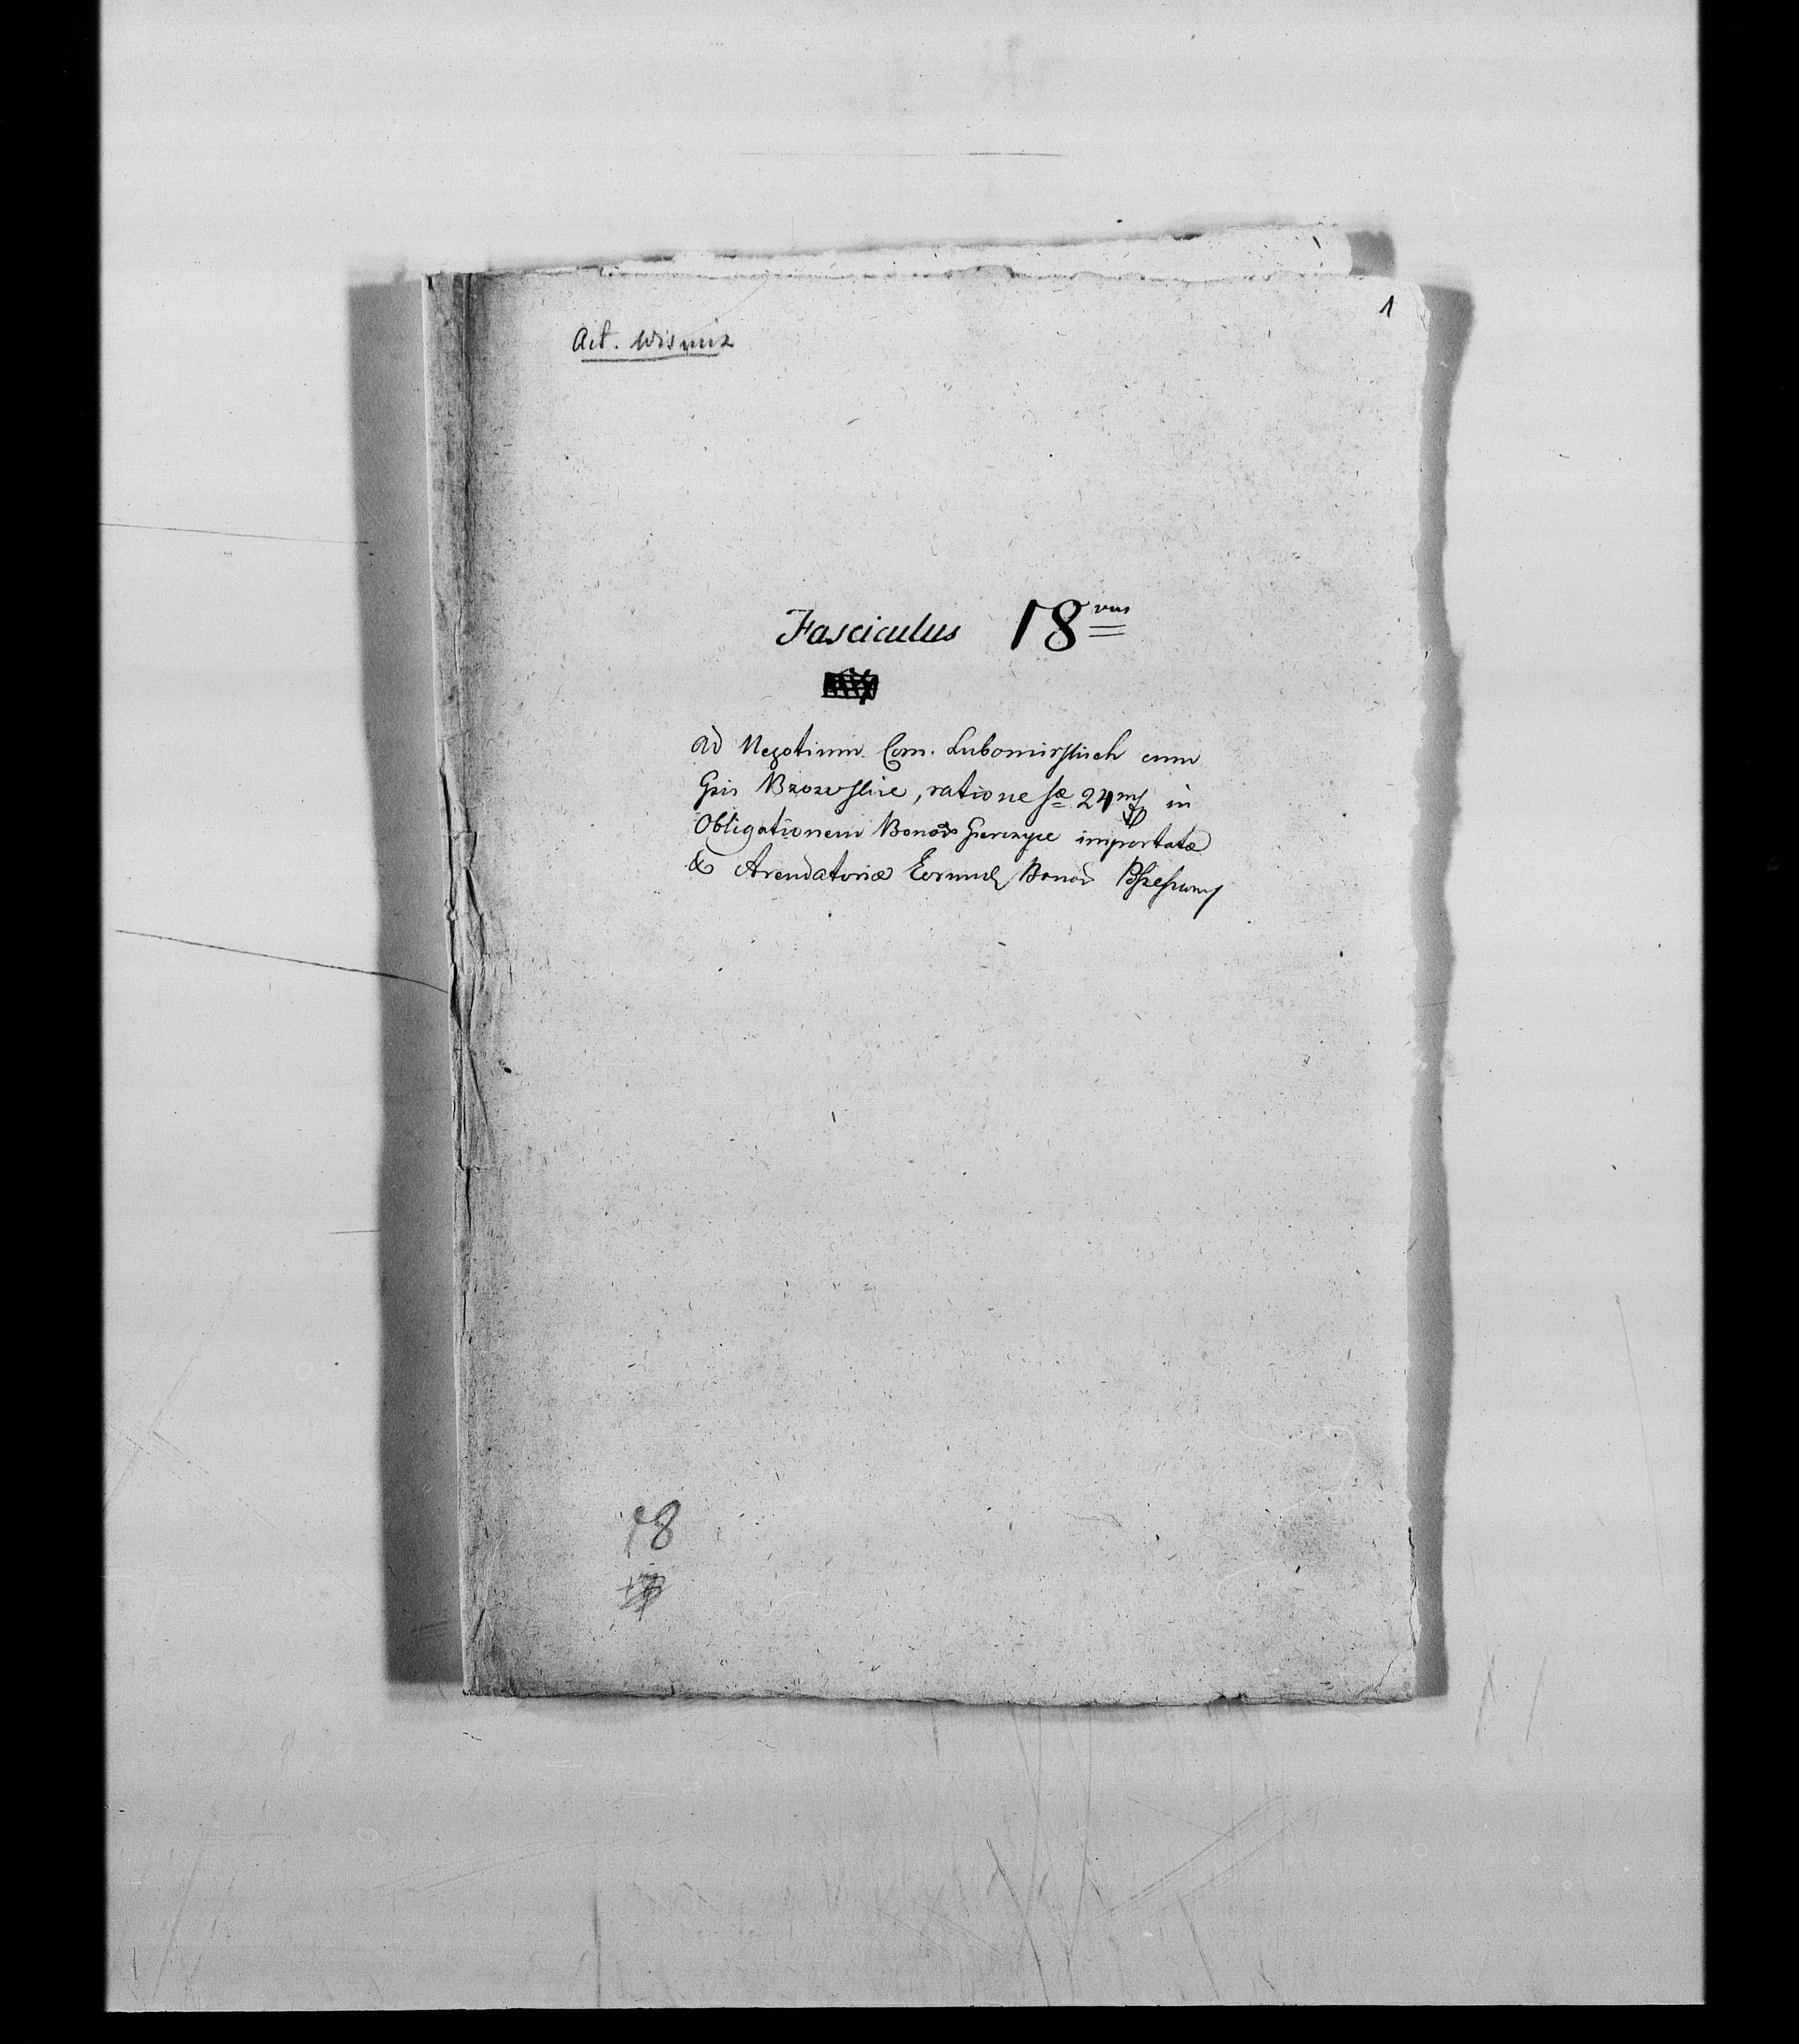 1
Act. Wisnicz
Fasciculus 18vus
ad Negotium Com. Lubomirskich cum
Gsis Brzoreskie, ratione sæ 24m in
Obligationem Bonor Gierczyce importatæ
& Arendatoriæ Eorund Bonor Possess
18